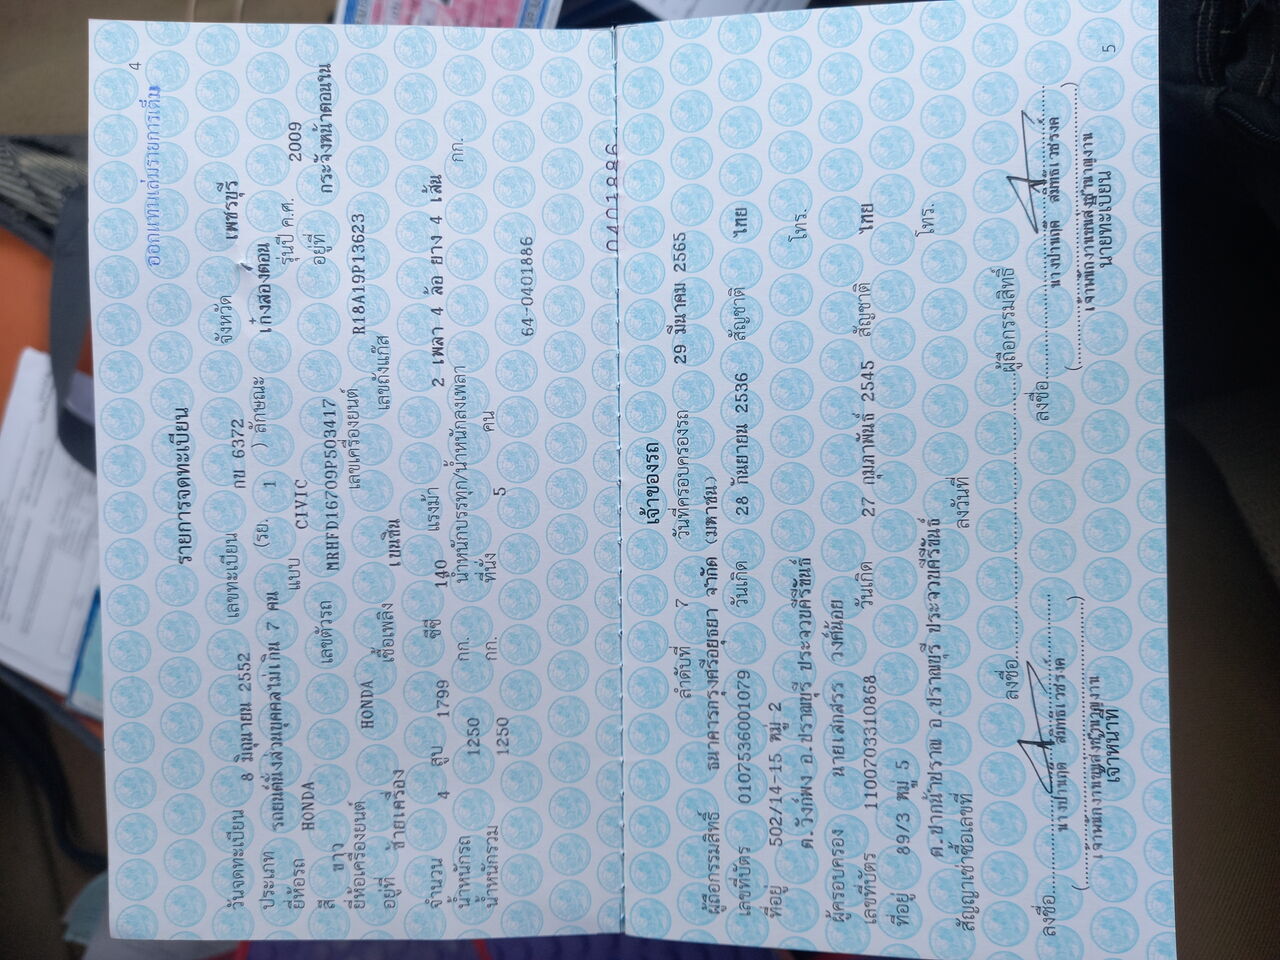 4
ออกแทนเล่มรายการเต็ม
รายการจดทะเบียน
วันจดทะเบียน 8 มิถุนายน 2552 เลขทะเบียน กบ 6372 จังหวัด เพชรบุรี
ประเภท รถยนต์นั่งส่วนบุคคลไม่เกิน 7 คน (รย. 1 ) ลักษณะ เก๋งสองตอน
ยี่ห้อรถ HONDA แบบ CIVIC รุ่นปี ค.ศ. 2009
สี ขาว เลขตัวรถ MRHFD16709P503417 อยู่ที่ กระจังหน้าตอนใน
ยี่ห้อเครื่องยนต์ HONDA เลขเครื่องยนต์ R18A19P13623
อยู่ที่ ซ้ายเครื่อง เชื้อเพลิง เบนซิน เลขถังแก๊ส
จำนวน 4 สูบ 1799 ซีซี 140 แรงม้า 2 เพลา 4 ล้อ ยาง 4 เส้น
น้ำหนักรถ 1250 กก. น้ำหนักบรรทุก/น้ำหนักลงเพลา กก.
น้ำหนักรวม 1250 กก. ที่นั่ง 5 คน
64-0401886
0401886
เจ้าของรถ
ลำดับที่ 7 วันที่ครอบครองรถ 29 มีนาคม 2565
ผู้ถือกรรมสิทธิ์ ธนาคารกรุงศรีอยุธยา จำกัด (มหาชน)
เลขที่บัตร 0107536001079 วันเกิด 28 กันยายน 2536 สัญชาติ ไทย
ที่อยู่ 502/14-15 หมู่ 2
ต.วังก์พง อ.ปราณบุรี ประจวบคีรีขันธ์ โทร.
ผู้ครอบครอง นายเสกสรร วงศ์น้อย
เลขที่บัตร 1100703310868 วันเกิด 27 กุมภาพันธ์ 2545 สัญชาติ ไทย
ที่อยู่ 89/3 หมู่ 5
ต.ปากน้ำปราณ อ.ปราณบุรี ประจวบคีรีขันธ์ โทร.
สัญญาเช่าซื้อเลขที่ ลงวันที่
ลงชื่อ ผู้ถือกรรมสิทธิ์
ลงชื่อ ลงชื่อ
เจ้าหน้าที่ นายทะเบียน
5